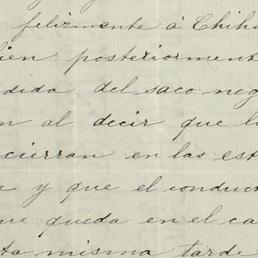 felizmente á Chihu
ien posteriorment
dida del saco neg
n al decir que l
cierran en las est
e y que el conduct
ue queda en el ca
ta misma tarde